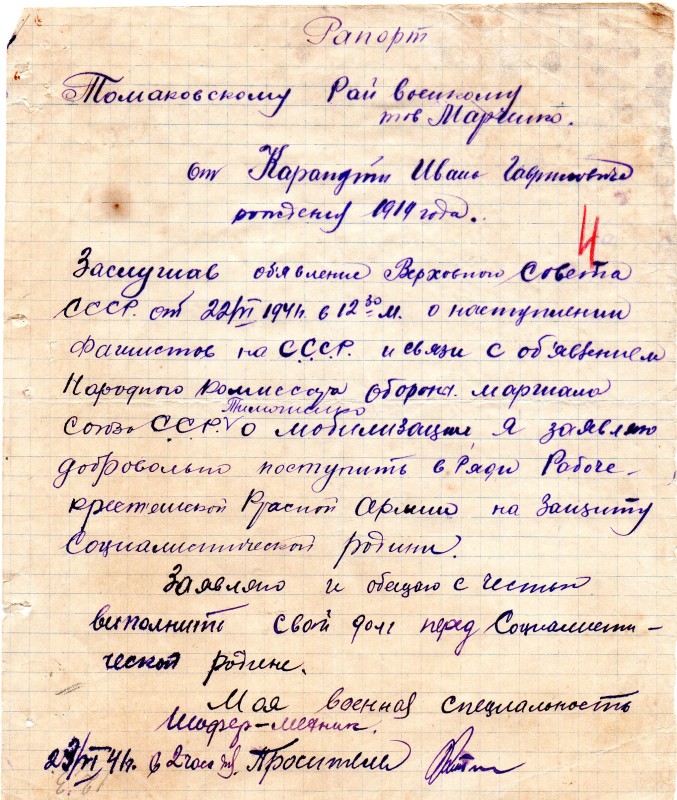 Рапорт
Томаковскому Рай военкому
тов Марченко.
от Ивана Гавриловича
рождения 1919 года.
4
Заслушав обявления Верховного Совета
СССР. от 22/VI 1941г. в 12 30 м. о наступлении
Фашистов на С.С.С.Р. и связи с об'явением
Народного Комиссара обороны. маршала
Союза С.С.Р. Тимошенко о мобилизации, я заявляю
добровольно поступить в Ряди Рабоче-
крестянской Красной Армии на защиту
Социалистической родини.
Заявляю и обещаю с честью
виполнить свой долг перед Социалисти-
ческой родине.
Моя военная специальность
Шофер-механик.
23/VI 41г. в 2 часа Проситель